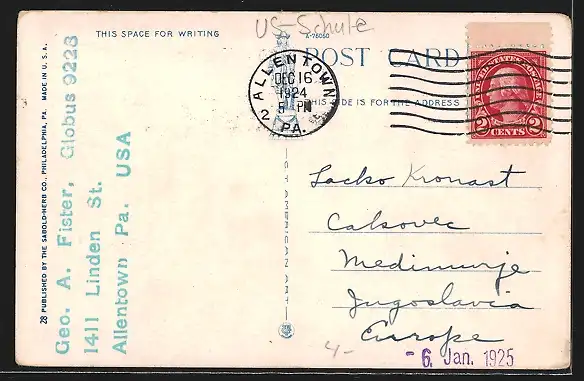 US-Schule
THIS SPACE FOR WRITING
A-76050
POST CARD
THIS SIDE IS FOR THE ADDRESS
ALLENTOWN
DEC 16
1924
5 PM
2 PA.
UNITED STATES POSTAGE
2 CENTS 2
28 PUBLISHED BY THE SABOLD-HERB CO., PHILADELPHIA, PA. MADE IN U. S. A.
Geo. A. Fister, Globus 9223
1411 Linden St.
Allentown Pa. USA
C. T. AMERICAN ART
Lacko Kronast
Cakovec
Medimurje
Jugoslavia
Europe
4-
- 6. Jan. 1925